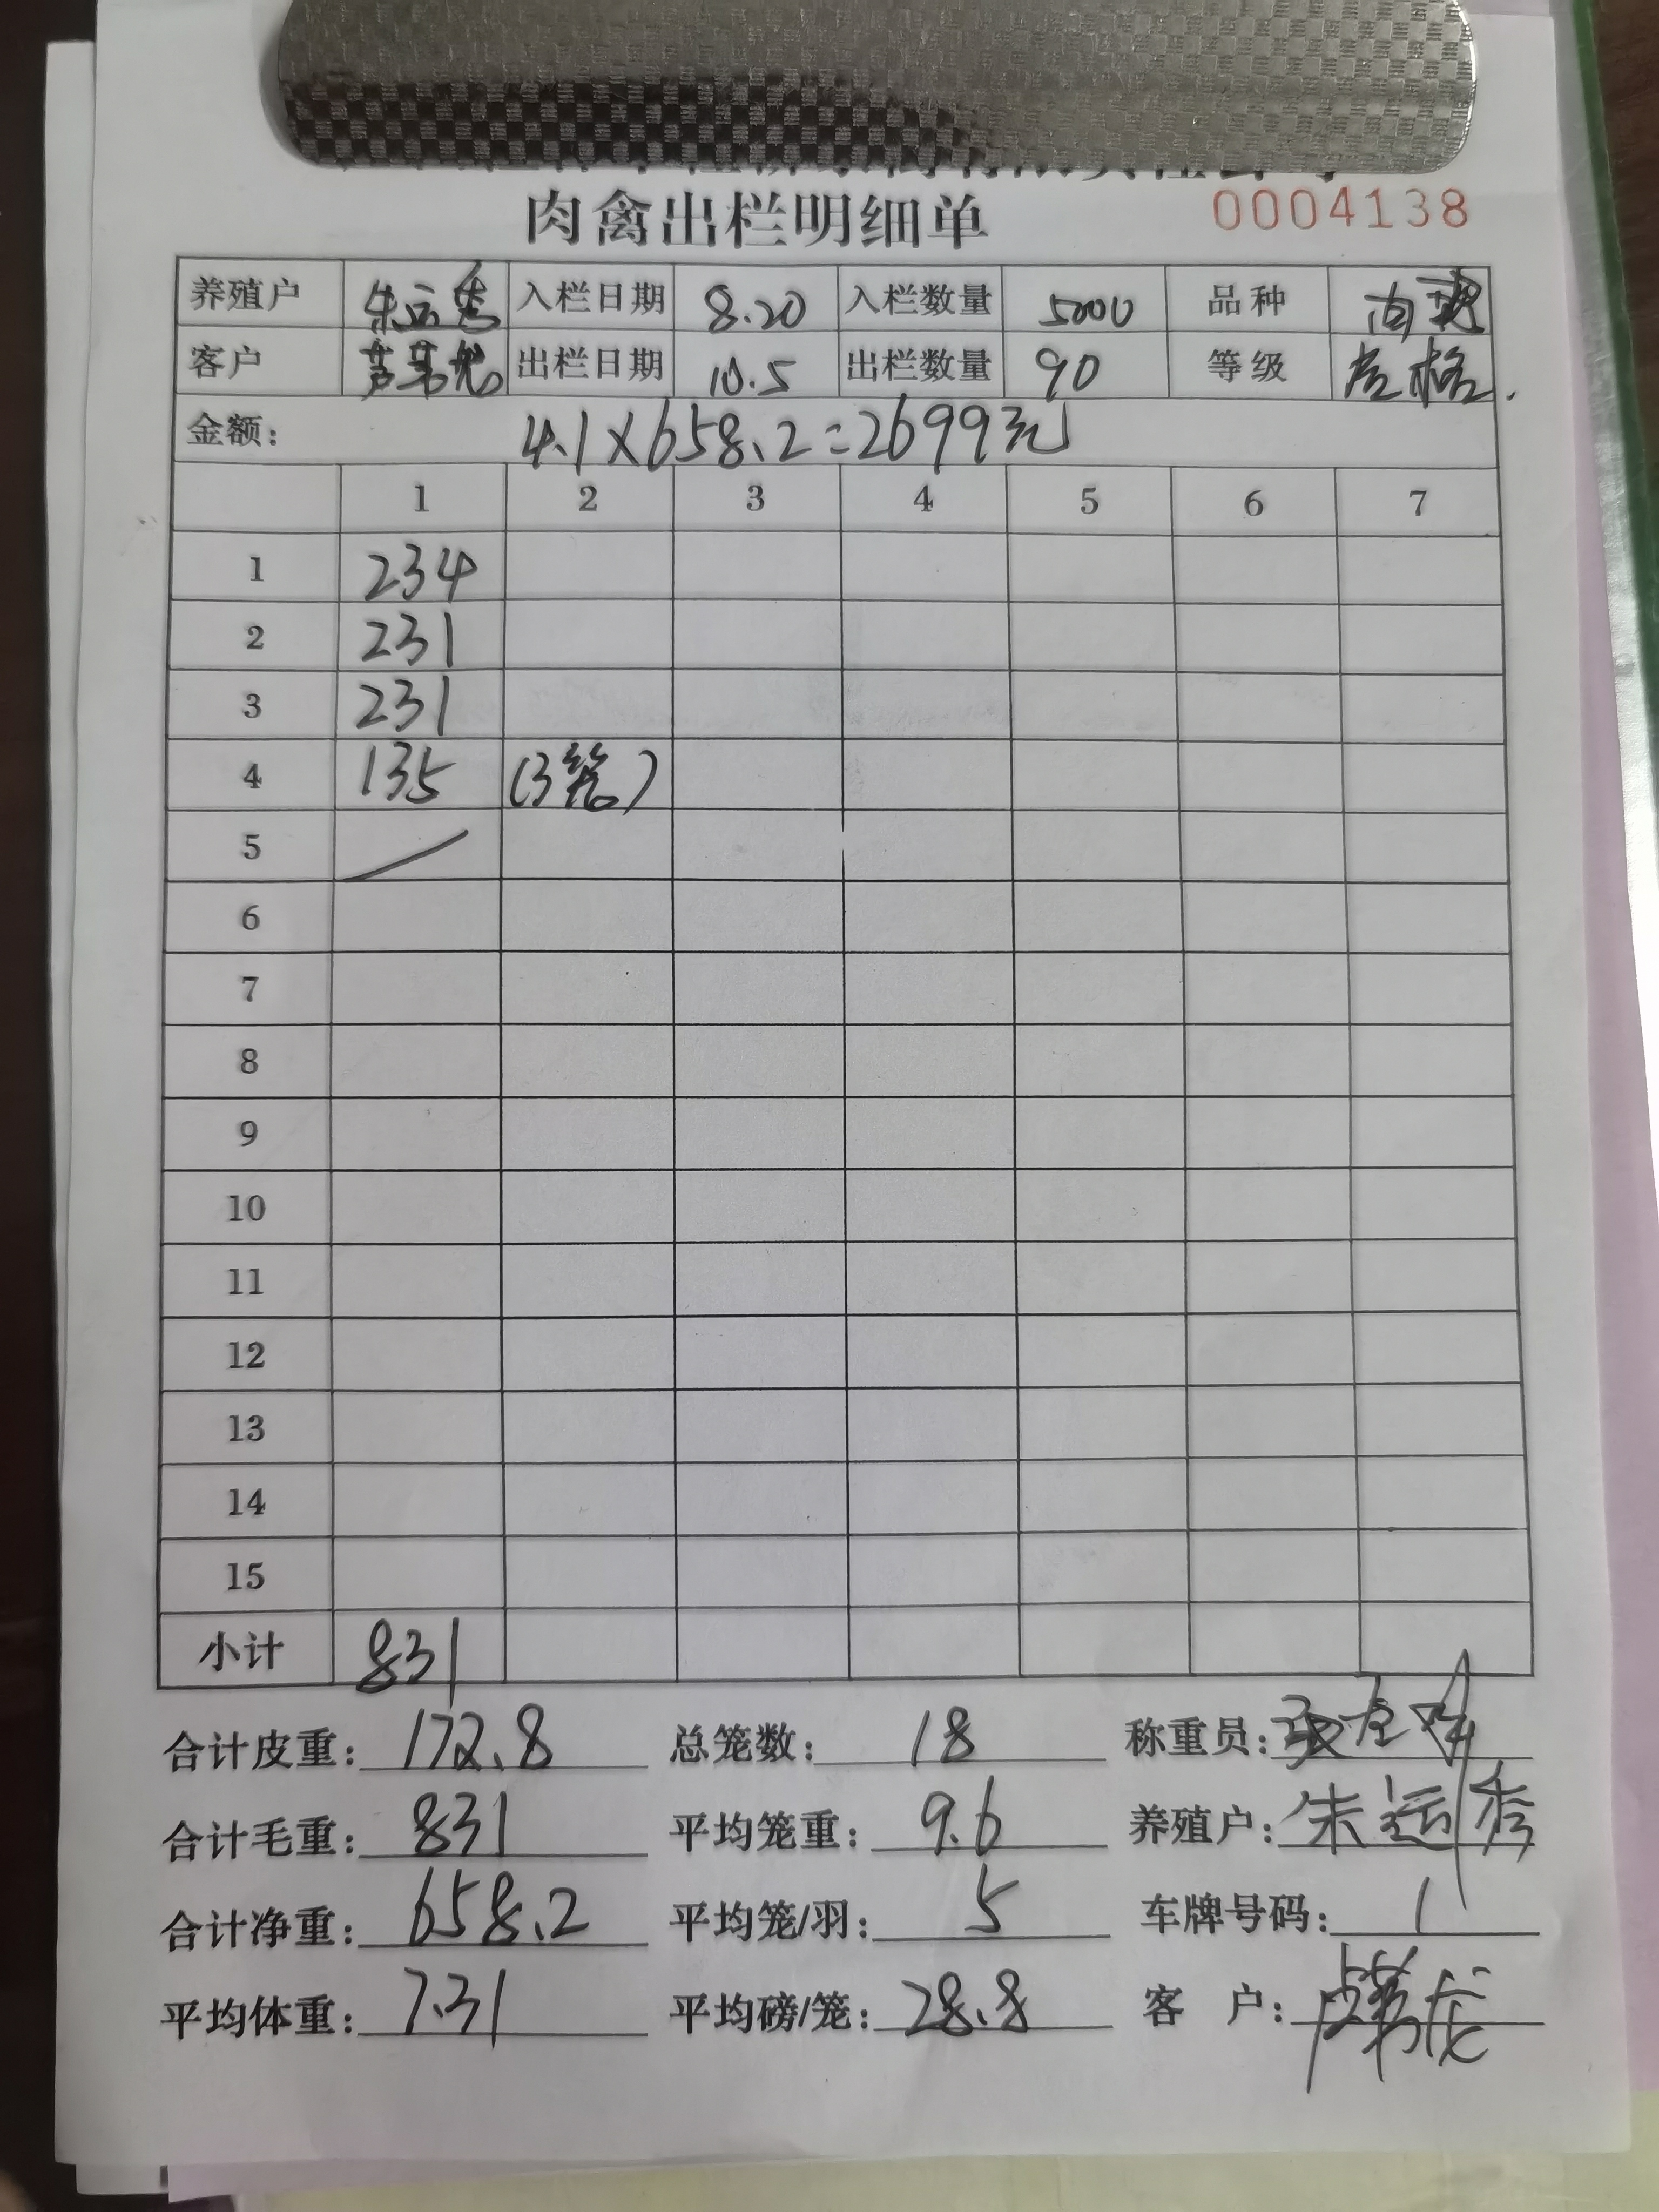 肉禽出栏明细单 0004138
养殖户 朱运秀 入栏日期 8.20 入栏数量 5000 品种
客户 出栏日期 10.5 出栏数量 90 等级
金额: 4.1×658.2=2699元
1 2 3 4 5 6 7
1 234
2 231
3 231
4 135 (3笼)
5
6
7
8
9
10
11
12
13
14
15
小计 831
合计皮重: 172.8 总笼数: 18 称重员:
合计毛重: 831 平均笼重: 9.6 养殖户: 朱运秀
合计净重: 658.2 平均笼/羽: 5 车牌号码: 1
平均体重: 7.31 平均磅/笼: 28.8 客 户: